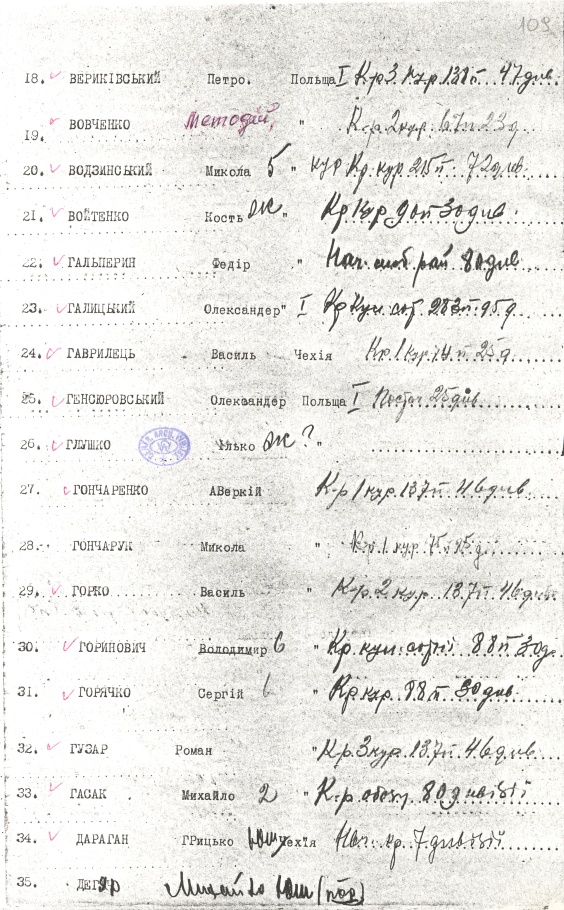 109
18. ВЕРИКІВСЬКИЙ Петро. Польща I К.р 3 кур. 138 п 47 днв.
19. ВОВЧЕНКО Методій, " К.р. 2 кур. 67 п 23 д
20. ВОДЗИНСЬКИЙ Микола 5 " кур Кр. кур. 215 п. 72 днв.
21. ВОЙТЕНКО Кость Ж " Кр Кур 90 п 30 днв.
22. ГАЛЬПЕРИН Федір " Нач. рай 80 днв
23. ГАЛИЦЬКИЙ Олександер " I Кр Кул. сот. 283 п. 95 д.
24. ГАВРИЛЕЦЬ Василь Чехія Кр. 1 кур. п 25 д
25. ГЕНСЮРОВСЬКИЙ Олександер Польща I 25 днв
26. ГЛУШКО Ілько Ж? "
27. ГОНЧАРЕНКО АВеркій К-р 1 кур. 137 п 46 днв
28. ГОНЧАРУК Микола " К.р. 1. кур. 75 п 95 д
29. ГОРКО Василь " К-р. 2 кур. 137 п. 46 днв.
30. ГОРИНОВИЧ Володимир 6 " Кр. кул. сотні 88 п 30 д
31. ГОРЯЧКО Сергій 6 " Кр кур. 88 п 30 днв
32. ГУЗАР Роман " К.р. 3 кур. 137 п. 46 днв
33. ГАСАК Михайло 2 " К-р. обозу 80 днвізії
34. ДАРАГАН ГРицько Юш Чехія Нач. кр. 7 дивізії
35. ДЕГТЯР Михайло Юш (под)